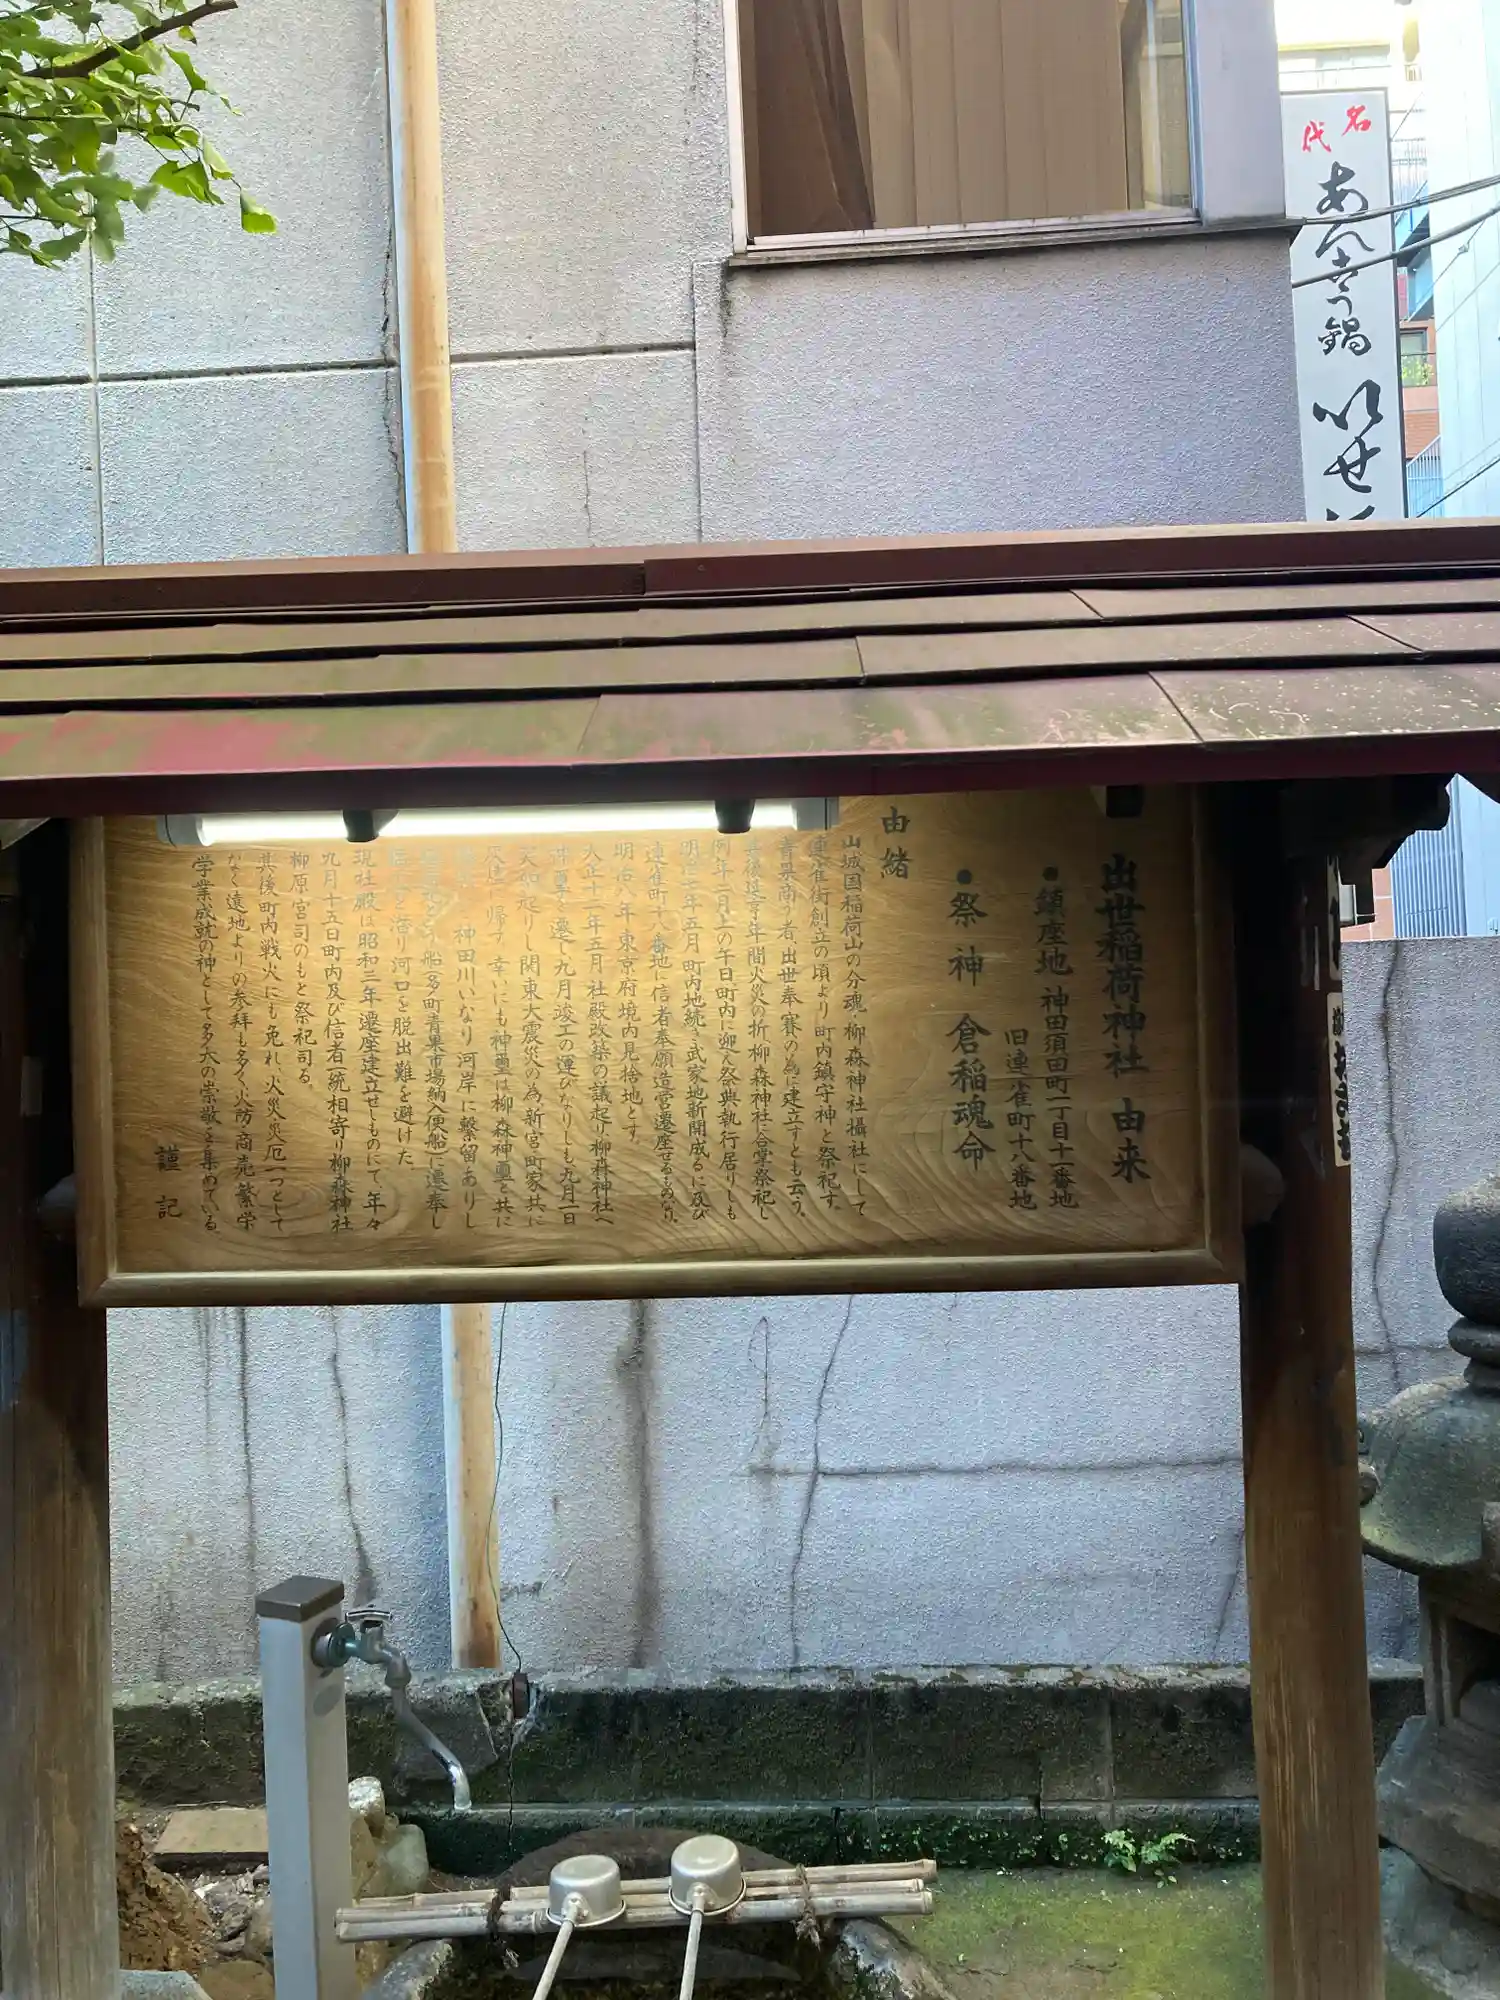 名代
あんこう鍋 いせ
出世稲荷神社 由来
●鎮座地 神田須田町一丁目十一番地
旧連雀町十八番地
●祭神 倉稲魂命
由緒
山城国稲荷山の分魂、柳森神社攝社にして
連雀街創立の頃より町内鎮守神と祭祀す。
青果商う者、出世奉賽の為に建立すとも云う。
其後延享年間火災の折柳森神社に合掌祭祀し
例年二月上の午日町内に迎え祭典執行居りしも
明治七年五月町内地続き武家地新開成るに及び
連雀町十八番地に信者奉願造営遷座せるものなり。
明治八年、東京府境内見捨地とす。
大正十二年五月社殿改築の議起り柳森神社へ
神璽を遷し九月竣工の運びなりしも九月一日
突如起りし関東大震災の為新宮町家共に
灰燼に帰す、幸いにも神璽は柳森神璽と共に
神田川いなり河岸に繋留ありし
船(多町青果市場納入便船)に遷奉し
を沿り河口を脱出難を避けた。
現社殿は昭和三年遷座建立せしものにて、年々
九月十五日町内及び信者一統相寄り柳森神社
柳原宮司のもと祭祀司る。
其後町内戦火にも免れ、火災災厄一つとして
なく遠地よりの参拝も多く、火防商売繁栄
学業成就の神として多大の崇敬を集めている。
謹記